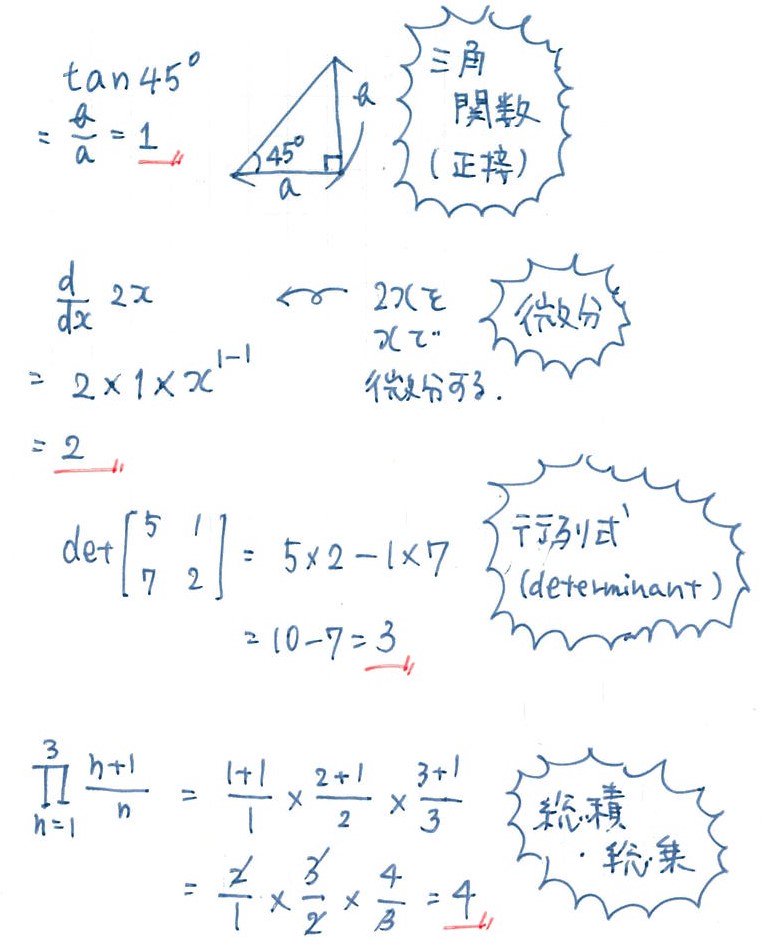 tan 45°
= a/a = 1
45°
a
a
三角
関数
(正接)
d/dx 2x
2xを
xで
微分する.
微分
= 2 × 1 × x^{1-1}
= 2
det[5 1
7 2] = 5×2−1×7
= 10−7 = 3
行列式
(determinant)
3
∏ (n+1)/n = (1+1)/1 × (2+1)/2 × (3+1)/3
n=1
= 2/1 × 3/2 × 4/3 = 4
総積
・総乗